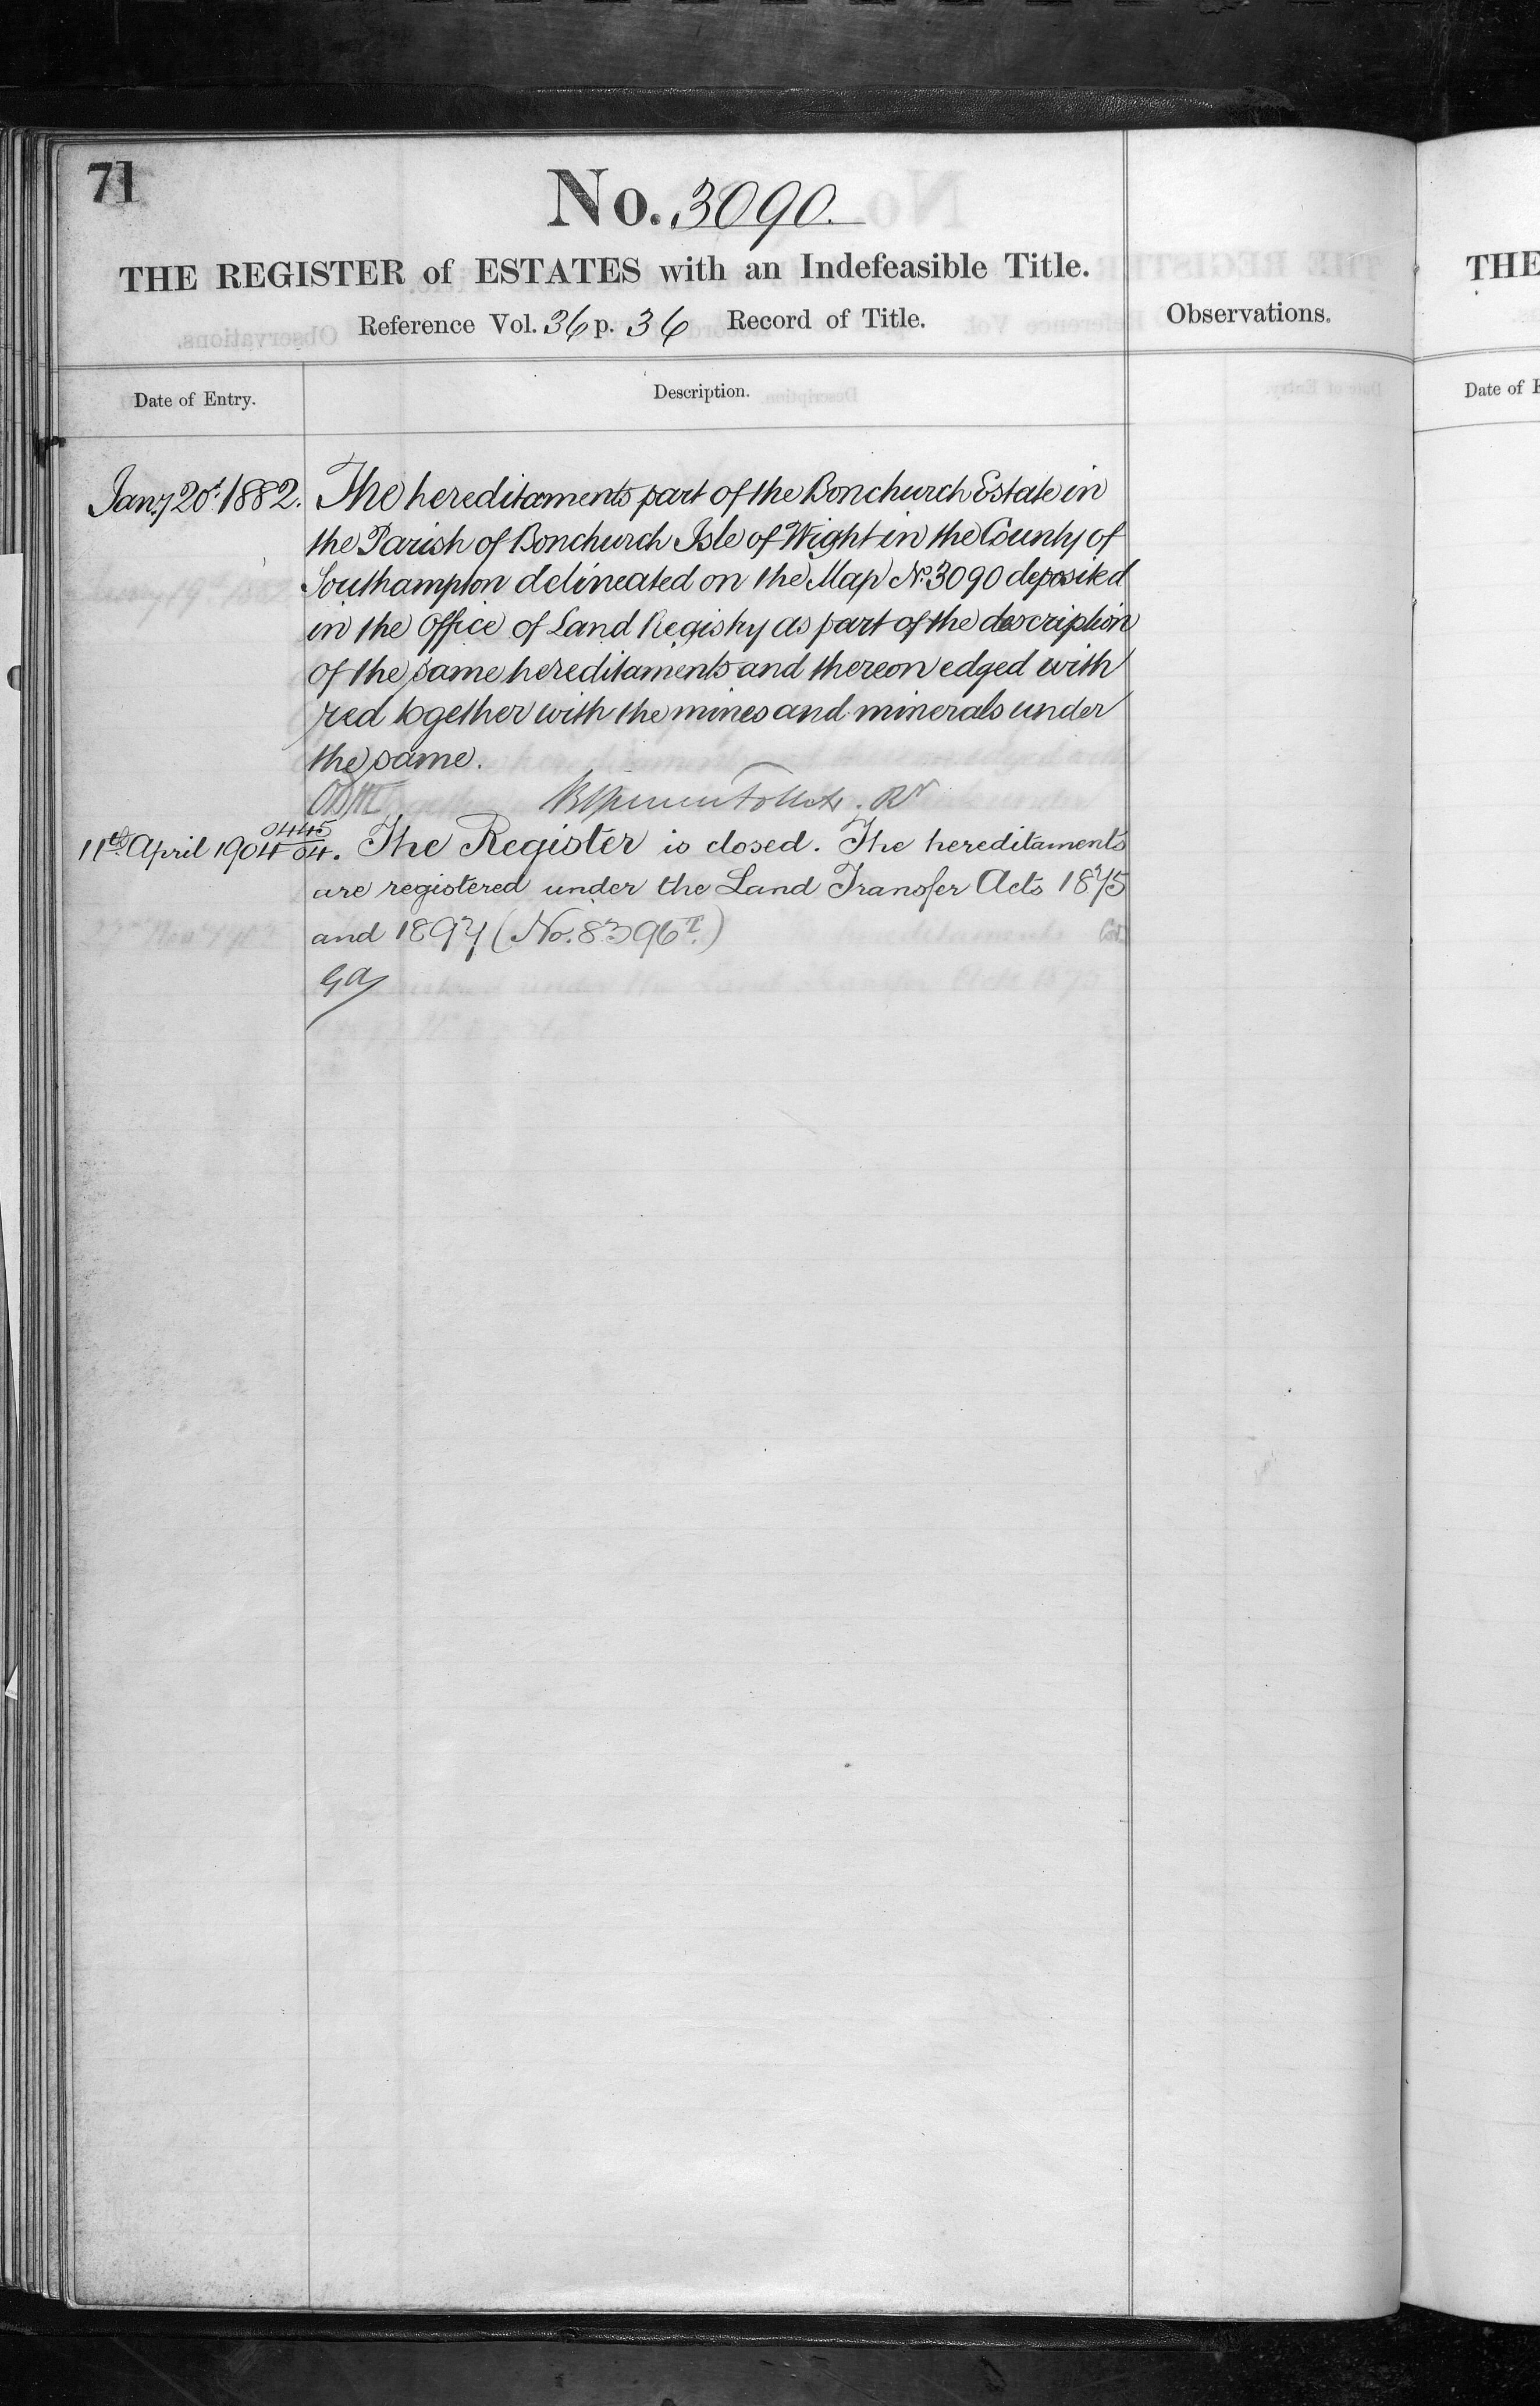 71
No. 3090.
THE REGISTER of ESTATES with an Indefeasible Title.
Reference Vol. 36 p. 36 Record of Title.
Observations.
Date of Entry.
Description.
Jany 20th 1882.
The hereditaments part of the Bonchurch Estate in
the Parish of Bonchurch Isle of Wight in the County of
Southampton delineated on the Map No. 3090 deposited
in the Office of Land Registry as part of the description
of the same hereditaments and thereon edged with
red together with the mines and minerals under
the same.
11th April 1904 0445/04. The Register is closed. The hereditaments
are registered under the Land Transfer Acts 1875
and 1897 (No. 8396
THE
Date of